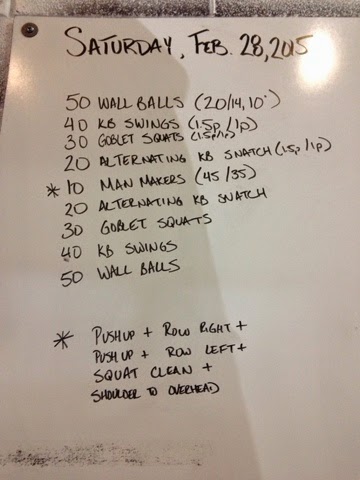 SATURDAY, FEB. 28, 2015
50 WALL BALLS (20/14, 10')
40 KB SWINGS (1.5p/1p)
30 GOBLET SQUATS (1.5p/1p)
20 ALTERNATING KB SNATCH (1.5p/1p)
* 10 MAN MAKERS (45/35)
20 ALTERNATING KB SNATCH
30 GOBLET SQUATS
40 KB SWINGS
50 WALL BALLS
* PUSHUP + ROW RIGHT +
PUSHUP + ROW LEFT +
SQUAT CLEAN +
SHOULDER TO OVERHEAD